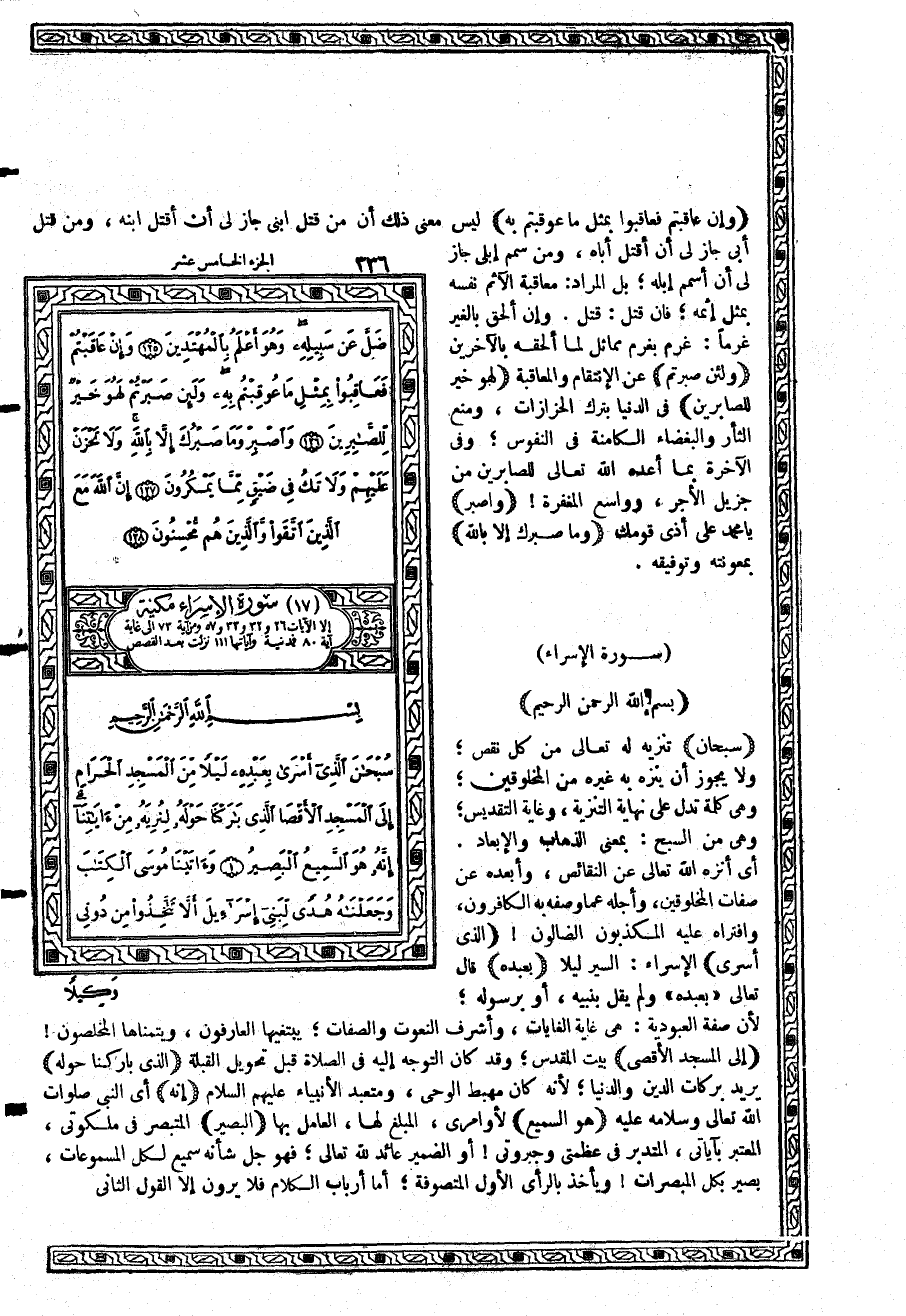 ﴿وإن عاقبتم فعاقبوا بمثل ما عوقبتم به﴾ ليس معنى ذلك أن من قتل ابنى جاز لى أن أقتل ابنه ، ومن قتل
أبى جاز لى أن أقتل أباه ، ومن سمم إبلى جاز
لى أن أسمم إبله ؛ بل المراد: معاقبة الآثم نفسه
بمثل إثمه ؛ فان قتل : قتل . وإن ألحق بالغير
غرماً : غرم بغرم مماثل لما ألحقه بالآخرين
﴿ولئن صبرتم﴾ عن الإنتقام والمعاقبة ﴿لهو خير
للصابرين﴾ فى الدنيا بترك الحزازات ، ومنع
الثأر والبغضاء الكامنة فى النفوس ؛ وفى
الآخرة بما أعده الله تعالى للصابرين من
جزيل الأجر ، وواسع المغفرة ! ﴿واصبر﴾
يامحمد على أذى قومك ﴿وما صبرك إلا بالله﴾
بمعونته وتوفيقه .
(سورة الإسراء)
﴿بسم الله الرحمن الرحيم﴾
﴿سبحان﴾ تنزيه له تعالى من كل نقص ؛
ولا يجوز أن ينزه به غيره من المخلوقين ؛
وهى كلمة تدل على نهاية التنزية ، وغاية التقديس ؛
وهى من السبح : بمعنى الذهاب والإبعاد .
أى أنزه الله تعالى عن النقائص ، وأبعده عن
صفات المخلوقين، وأجله عما وصفه به الكافرون،
وافتراه عليه المكذبون الضالون ! ﴿الذى
أسرى﴾ الإسراء : السير ليلا ﴿بعبده﴾ قال
تعالى «بعبده» ولم يقل بنبيه ، أو برسوله ؛
الجزء الخامس عشر ٣٣٦
ضَلَّ عَن سَبِيلِهِۦ وَهُوَ أَعْلَمُ بِٱلْمُهْتَدِينَ ١٢٥ وَإِنْ عَاقَبْتُمْ
فَعَاقِبُوا۟ بِمِثْلِ مَا عُوقِبْتُم بِهِۦ وَلَئِن صَبَرْتُمْ لَهُوَ خَيْرٌ
لِّلصَّٰبِرِينَ ١٢٦ وَٱصْبِرْ وَمَا صَبْرُكَ إِلَّا بِٱللَّهِ وَلَا تَحْزَنْ
عَلَيْهِمْ وَلَا تَكُ فِى ضَيْقٍ مِّمَّا يَمْكُرُونَ ١٢٧ إِنَّ ٱللَّهَ مَعَ
ٱلَّذِينَ ٱتَّقَوا۟ وَّٱلَّذِينَ هُم مُّحْسِنُونَ ١٢٨
(١٧) سورة الإسراء مكية
إلا الآيات ٢٦ و ٣٢ و ٣٣ و ٥٧ ومن آية ٧٣ الى غاية
آية ٨٠ فمدنية وآياتها ١١١ نزلت بعد القصص
بِسْمِ ٱللَّهِ ٱلرَّحْمَٰنِ ٱلرَّحِيمِ
سُبْحَٰنَ ٱلَّذِىٓ أَسْرَىٰ بِعَبْدِهِۦ لَيْلًا مِّنَ ٱلْمَسْجِدِ ٱلْحَرَامِ
إِلَى ٱلْمَسْجِدِ ٱلْأَقْصَا ٱلَّذِى بَٰرَكْنَا حَوْلَهُۥ لِنُرِيَهُۥ مِنْ ءَايَٰتِنَآ
إِنَّهُۥ هُوَ ٱلسَّمِيعُ ٱلْبَصِيرُ ١ وَءَاتَيْنَا مُوسَى ٱلْكِتَٰبَ
وَجَعَلْنَٰهُ هُدًى لِّبَنِىٓ إِسْرَٰٓءِيلَ أَلَّا تَتَّخِذُوا۟ مِن دُونِى
وَكِيلًا
لأن صفة العبودية : هى غاية الغايات ، وأشرف النعوت والصفات ؛ يبتغيها العارفون ، ويتمناها المخلصون !
﴿إلى المسجد الأقصى﴾ بيت المقدس ؛ وقد كان التوجه إليه فى الصلاة قبل تحويل القبلة ﴿الذى باركنا حوله﴾
يريد بركات الدين والدنيا ؛ لأنه كان مهبط الوحى ، ومتعبد الأنبياء عليهم السلام ﴿إنه﴾ أى النبى صلوات
الله تعالى وسلامه عليه ﴿هو السميع﴾ لأوامرى ، المبلغ لها ، العامل بها ﴿البصير﴾ المتبصر فى ملكوتى ،
المعتبر بآياتى ، المتدبر فى عظمتى وجبروتى ! أو الضمير عائد لله تعالى ؛ فهو جل شأنه سميع لكل المسموعات ،
بصير بكل المبصرات ! ويأخذ بالرأى الأول المتصوفة ؛ أما أرباب الكلام فلا يرون إلا القول الثانى